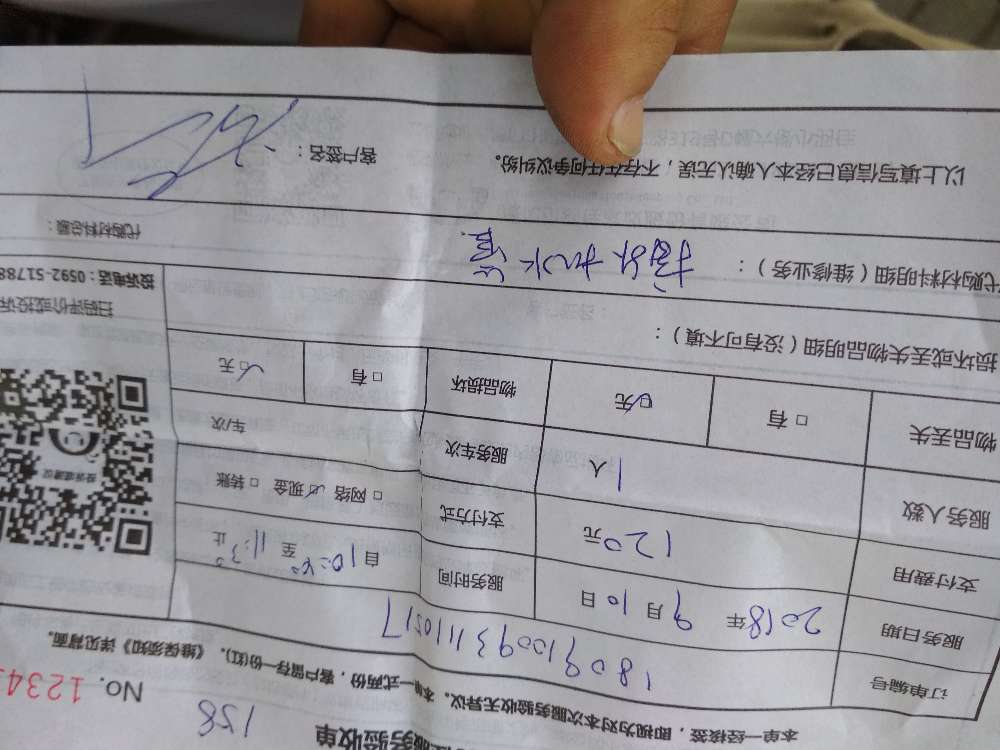 服务验收单
158
No. 1234
本单一经接签，即视为对本次服务验收无异议。本单一式两份，客户留存一份(红)。《维保须知》详见背面。
订单编号 180910093111051​7
服务日期 2018年 9月 10日 服务时间 自10:40至11:30止
支付费用 120元 支付方式 □网络 ☑现金 □转账
服务人数 1人 服务车次 车/次
物品丢失 □有 ☑无 物品损坏 □有 ☑无
扫码评价或投诉
投诉电话：0592-51788
损坏或丢失物品明细（没有可不填）：
代购材料明细（维修业务）：
代购材料总额：
以上填写信息已经本人确认无误，不存在任何争议纠纷。 客户签名：